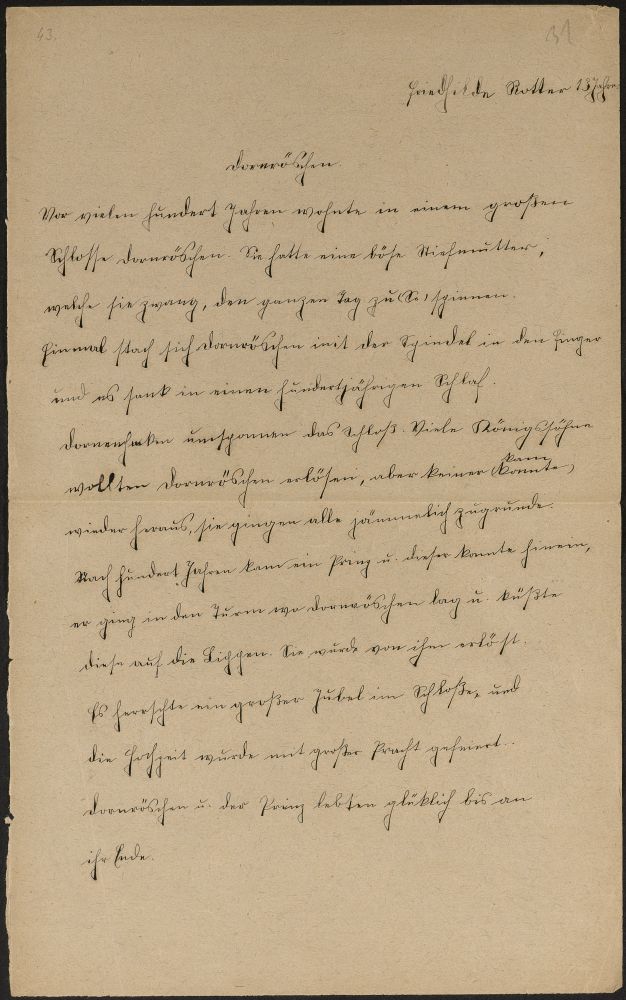 43.
31
Friedhilde Rotter 13 Jahre
Dornröschen.
Vor vielen hundert Jahren wohnte in einem großen
Schlosse Dornröschen. Sie hatte eine böse Stiefmutter,
welche sie zwang, den ganzen Tag zu (Se) spinnen.
Einmal stach sich Dornröschen mit der Spindel in den Finger
und es sank in einen hundertjährigen Schlaf.
Dornenhecken umspannen das Schloß. Viele Königssöhne
wollten Dornröschen erlösen, aber keiner (konnte) kam
wieder heraus, sie gingen alle jämmerlich zugrunde.
Nach hundert Jahren kam ein Prinz u. dieser konnte hinein,
er ging in den Turm wo Dornröschen lag u. küßte
diese auf die Lippen. Sie wurde von ihm erlöst.
Es herrschte ein großer Jubel im Schloße, und
die Hochzeit wurde mit großer Pracht gefeiert..
Dornröschen u. der Prinz lebten glüklich bis an
ihr Ende.